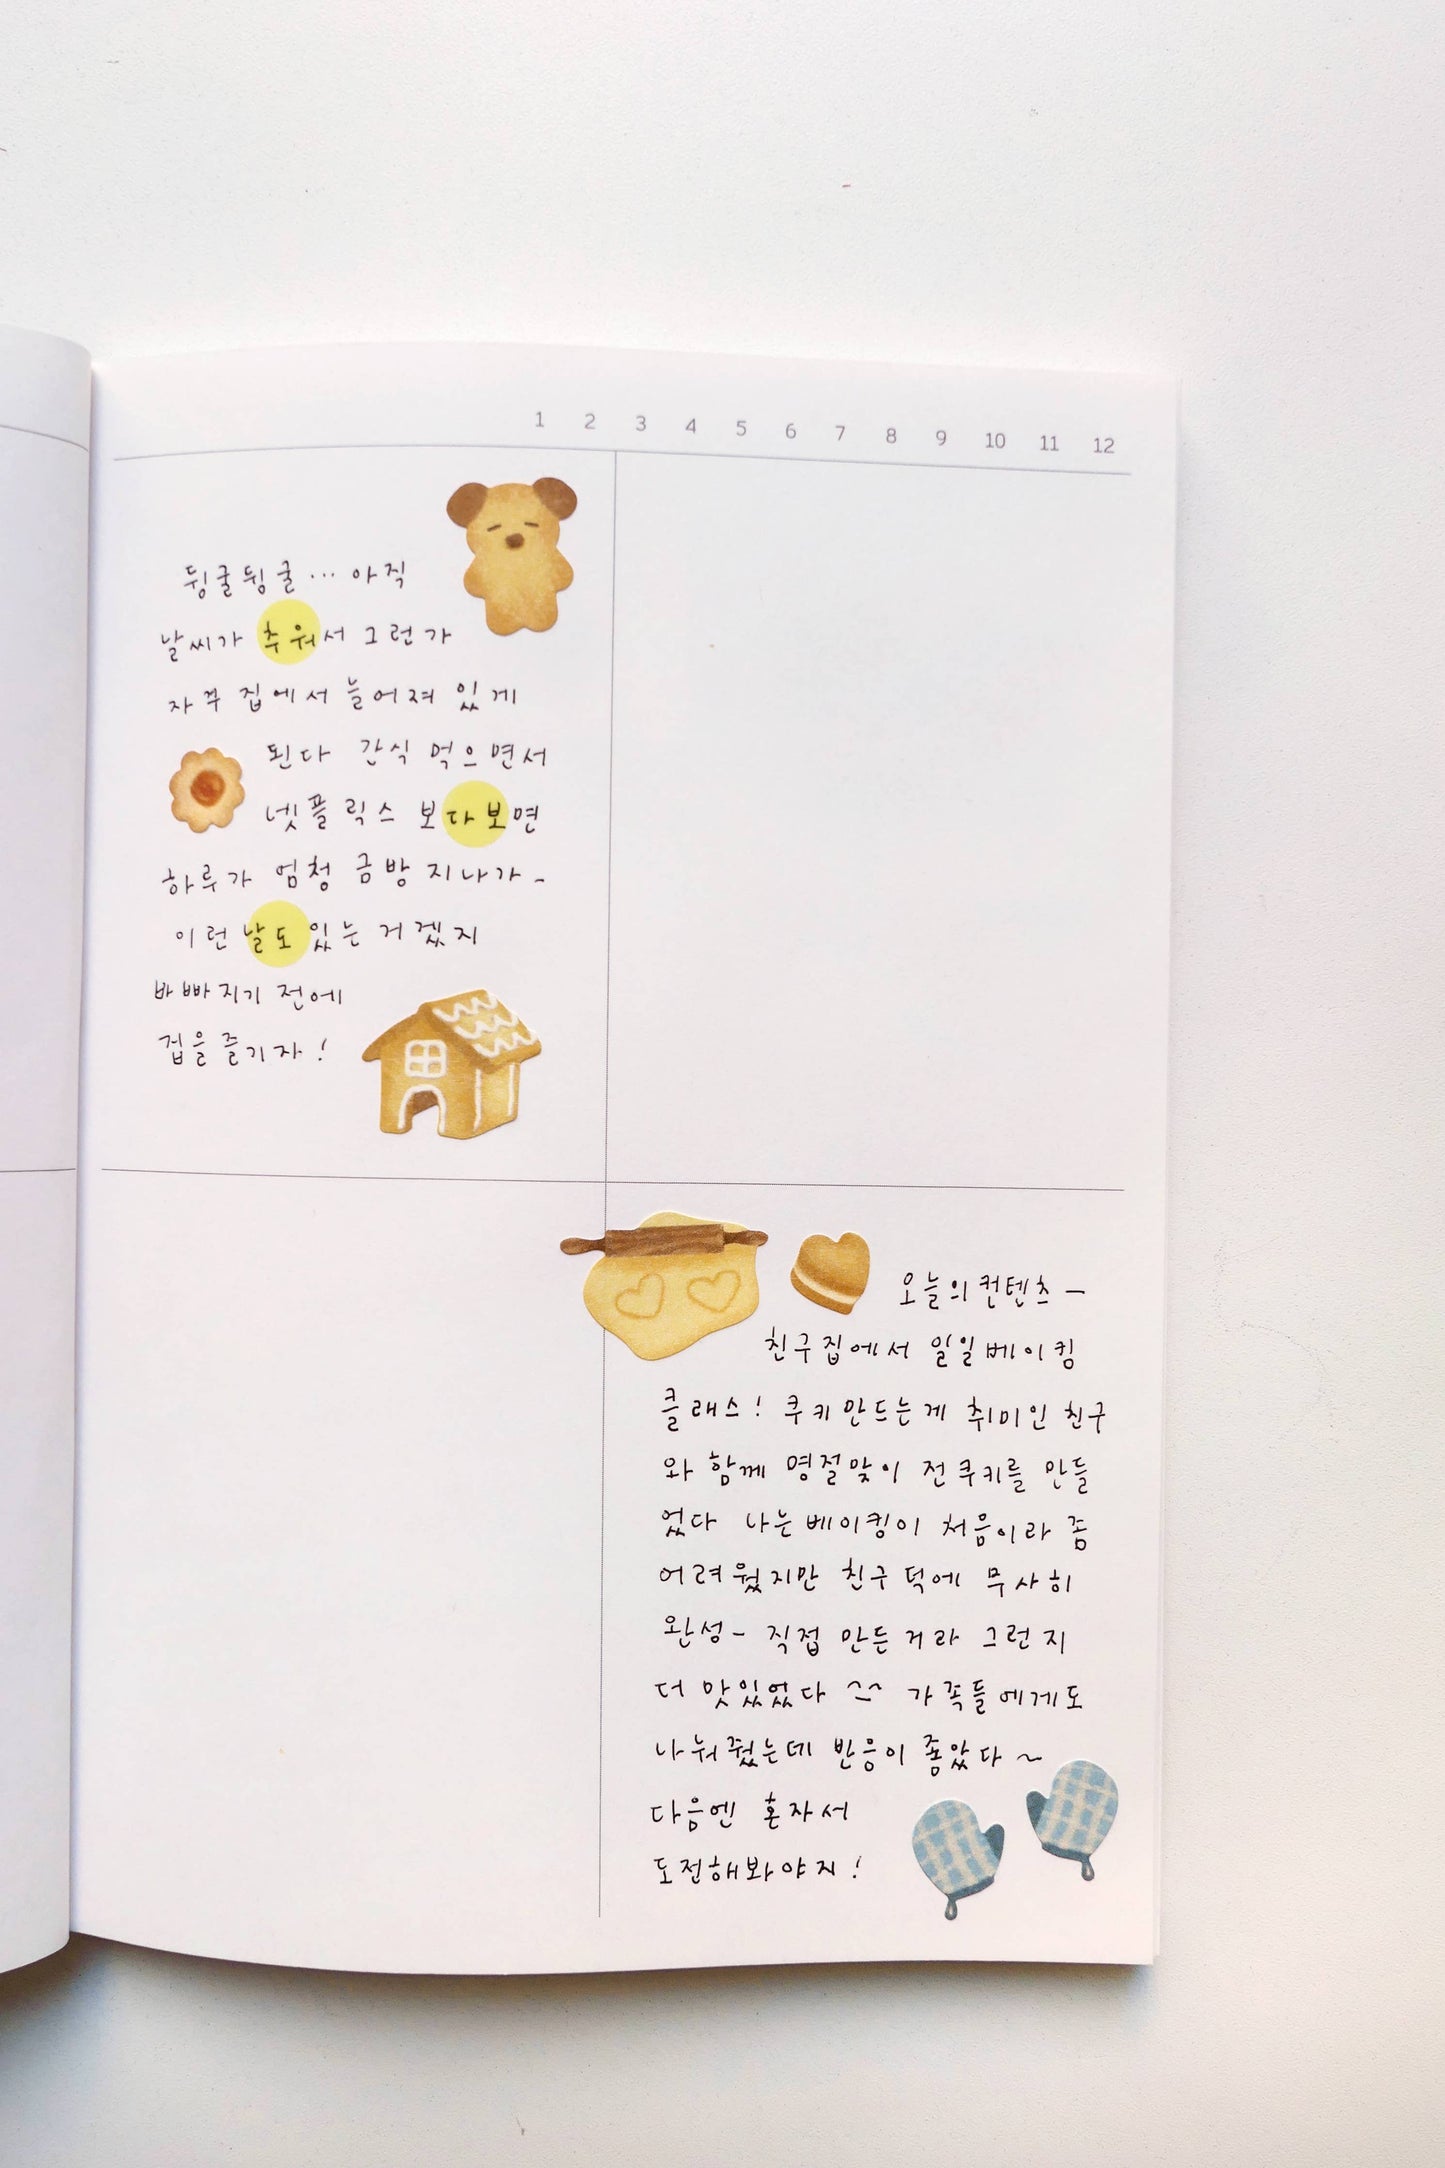 1 2 3 4 5 6 7 8 9 10 11 12
뒹굴뒹굴... 아직
날씨가 추워서 그런가
자꾸 집에서 늘어져 있게
된다 간식 먹으면서
넷플릭스 보다보면
하루가 엄청 금방 지나가-
이런 날도 있는 거겠지
바빠지기 전에
겁을 즐기자!
오늘의 컨텐츠-
친구집에서 일일베이킹
클래스! 쿠키만드는게 취미인 친구
와 함께 명절맞이 전쿠키를 만들
었다 나는 베이킹이 처음이라 좀
어려웠지만 친구 덕에 무사히
완성- 직접 만든거라 그런지
더 맛있었다 ^^ 가족들에게도
나눠줬는데 반응이 좋았다~
다음엔 혼자서
도전해봐야지!